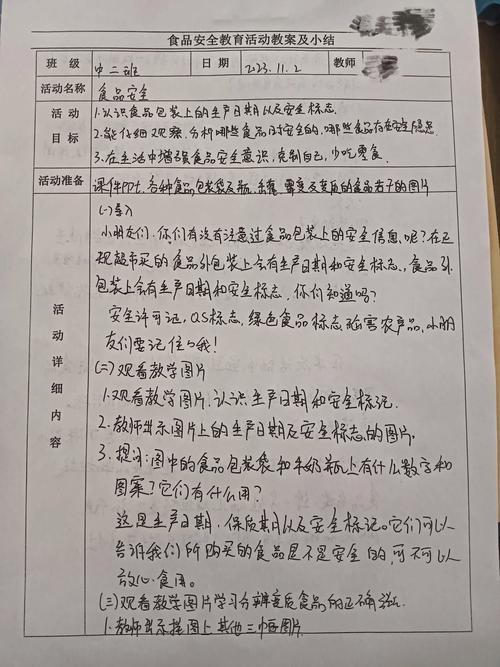 食品安全教育活动教案及小结
班 级 中二班 日 期 2023.11.2 教师
活动名称 食品安全
活 动 目 标 1.认识食品包装上的生产日期以及安全标志.
2.能仔细观察,分析哪些食品是安全的,哪些食品存在安全隐患
3.在生活中增强食品安全意识,克制自己,少吃零食.
活动准备 课件PPT.各种食品包装袋及瓶、霉变及变质的食品若干的图片
活 动 详 细 内 容
(一)导入
小朋友们.你们有没有注意过食品包装上的安全信息呢?在正
规超市买的食品外包装上会有生产日期和安全标志.,食品外
包装上会有生产日期和安全标志.你们知道吗?
安全许可证,QS标志,绿色食品标志.农产品.小朋
友们要记住哦!
(二)观看教学图片
1.观看教学图片.认识生产日期和安全标记.
2.教师出示图片上的生产日期及安全标志的图片.
3.提问:图中的食品包装袋和牛奶瓶上有什么数字和
图案?它们有什么用?
这是生产日期,保质期以及安全标记。它们可以
告诉我们所购买的食品是不是安全的,可不可以
放心食用。
(三)观看教学图片学习分辨变质食品的正确方法.
1.教师出示挂图上其他三幅图片.